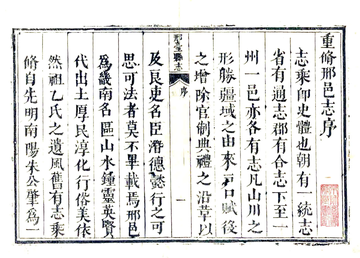 重脩邢邑志序
志乘卽史體也朝有一統志
省有通志郡有合志下至一
州一邑亦各有志凡山川之
形勝疆域之由來戶口賦役
之增除官制典禮之沿革以
邢臺縣志
序
一
及良吏名臣潛德懿行之可
思可法者莫不畢載焉邢邑
為畿南名區山水鍾靈英賢
代出土厚民淳化行俗美依
然祖乙氏之遺風舊有志乘
脩自先明南陽朱公肇為一